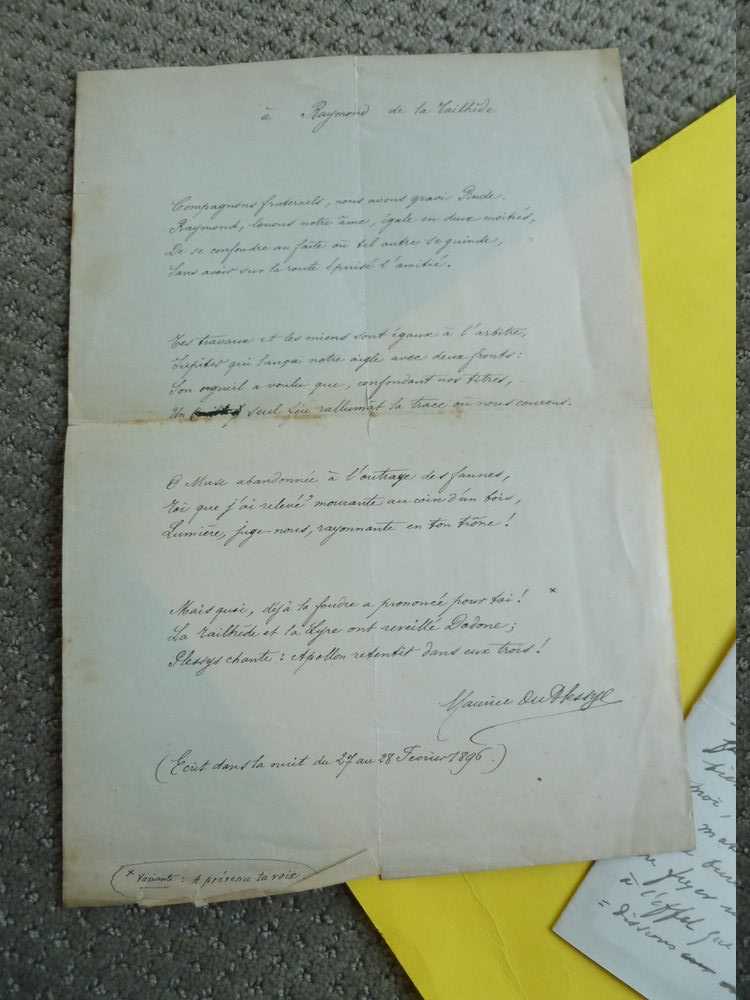 à Raymond de la Tailhède
Compagnons fraternels, nous avons gravi Pinde.
Raymond, louons notre âme, égale en deux moitiés,
De se confondre au faîte où tel autre se guinde,
Sans avoir sur la route épuisé l'amitié.
Tes travaux et les miens sont égaux à l'arbitre,
Jupiter qui lança notre aigle avec deux fronts :
Son orgueil a voulu que, confondant nos titres,
Un seul feu rallumât la trace où nous courons.
O Muse abandonnée à l'outrage des faunes,
Toi que j'ai relevé mourante au coin d'un bois,
Lumière, juge-nous, rayonnante en ton trône !
Mais quoi, déjà la foudre a prononcé pour toi ! ×
La Tailhède et la Lyre ont réveillé Dodone ;
Plessys chante : Apollon retentit dans eux trois !
Maurice du Plessys
(Écrit dans la nuit du 27 au 28 Février 1896.)
× Variante : A prévenu ta voix
moi,
à l'effet que